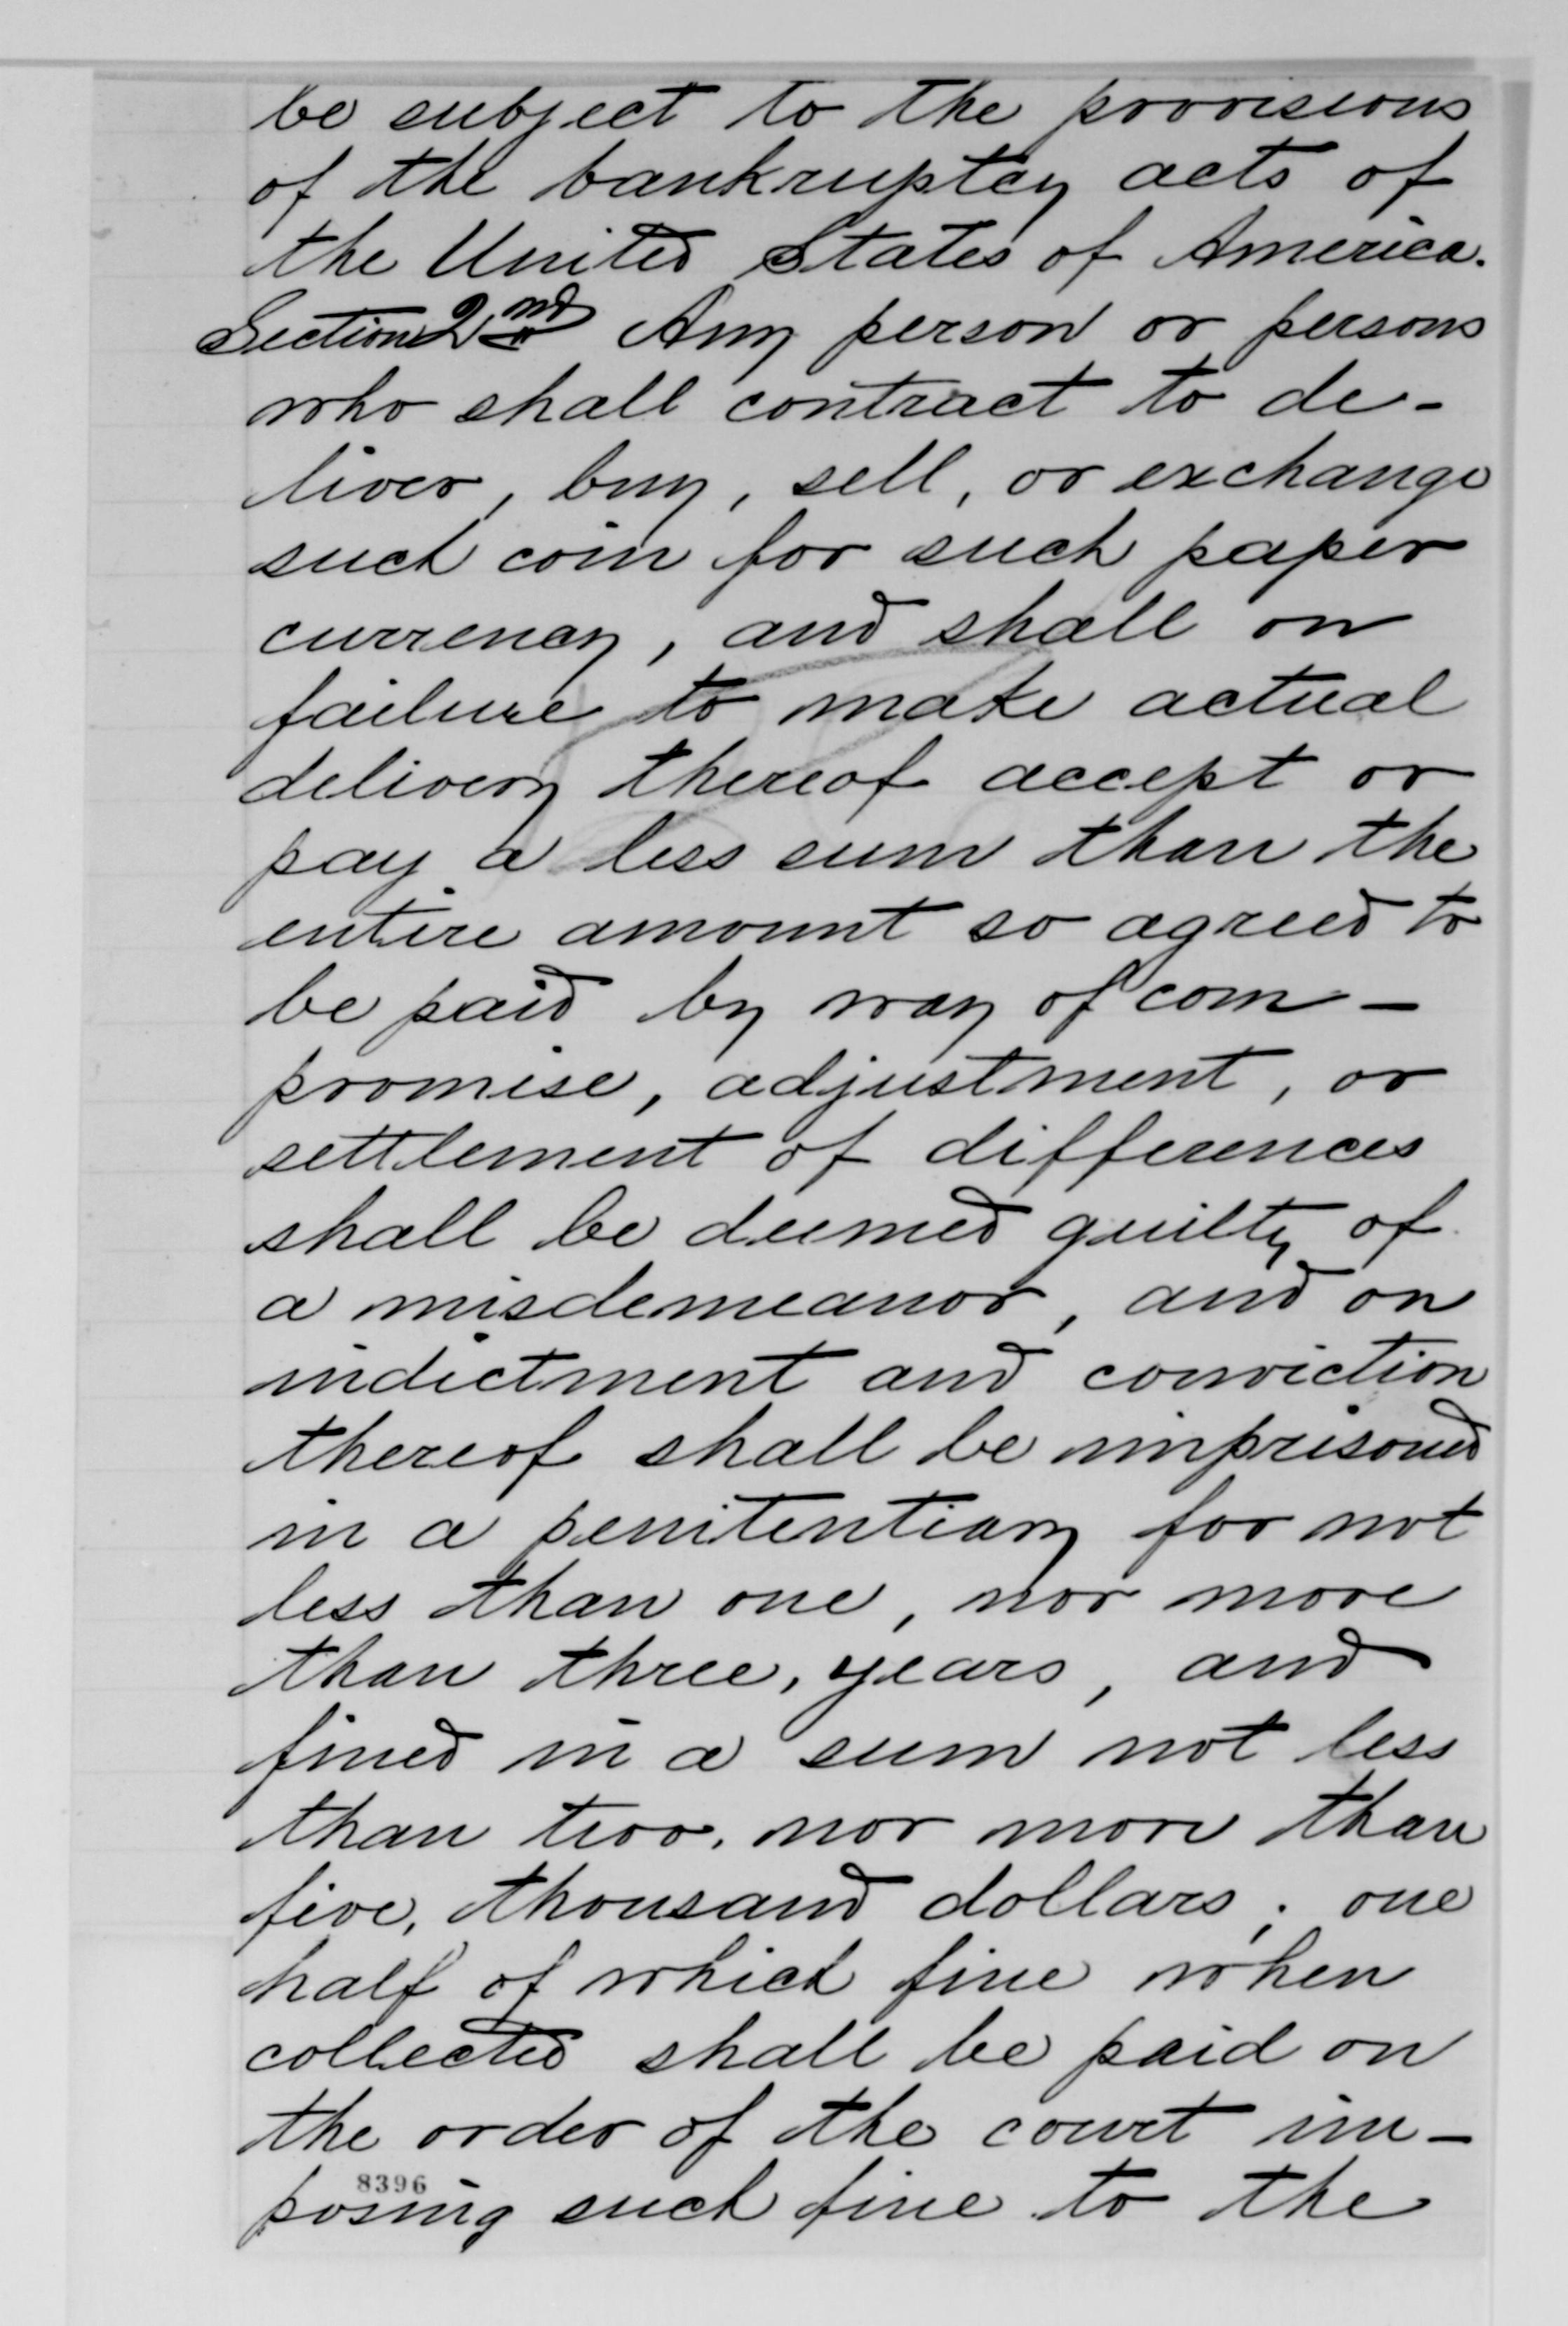 be subject to the provisions
of the bankruptcy acts of
the United States of America.
Section 2nd Any person or persons
who shall contract to de-
liver, buy, sell, or exchange
such coin for such paper
currency, and shall on
failure to make actual
delivery thereof accept or
pay a less sum than the
entire amount so agreed to
be paid by way of com-
promise, adjustment, or
settlement of differences
shall be deemed guilty of
a misdemeanor, and on
indictment and conviction
thereof shall be imprisoned
in a penitentiary for not
less than one, nor more
than three, years, and
fined in a sum not less
than two, nor more than
five, thousand dollars; one
half of which fine when
collected shall be paid on
the order of the court im-
8396
posing such fine to the